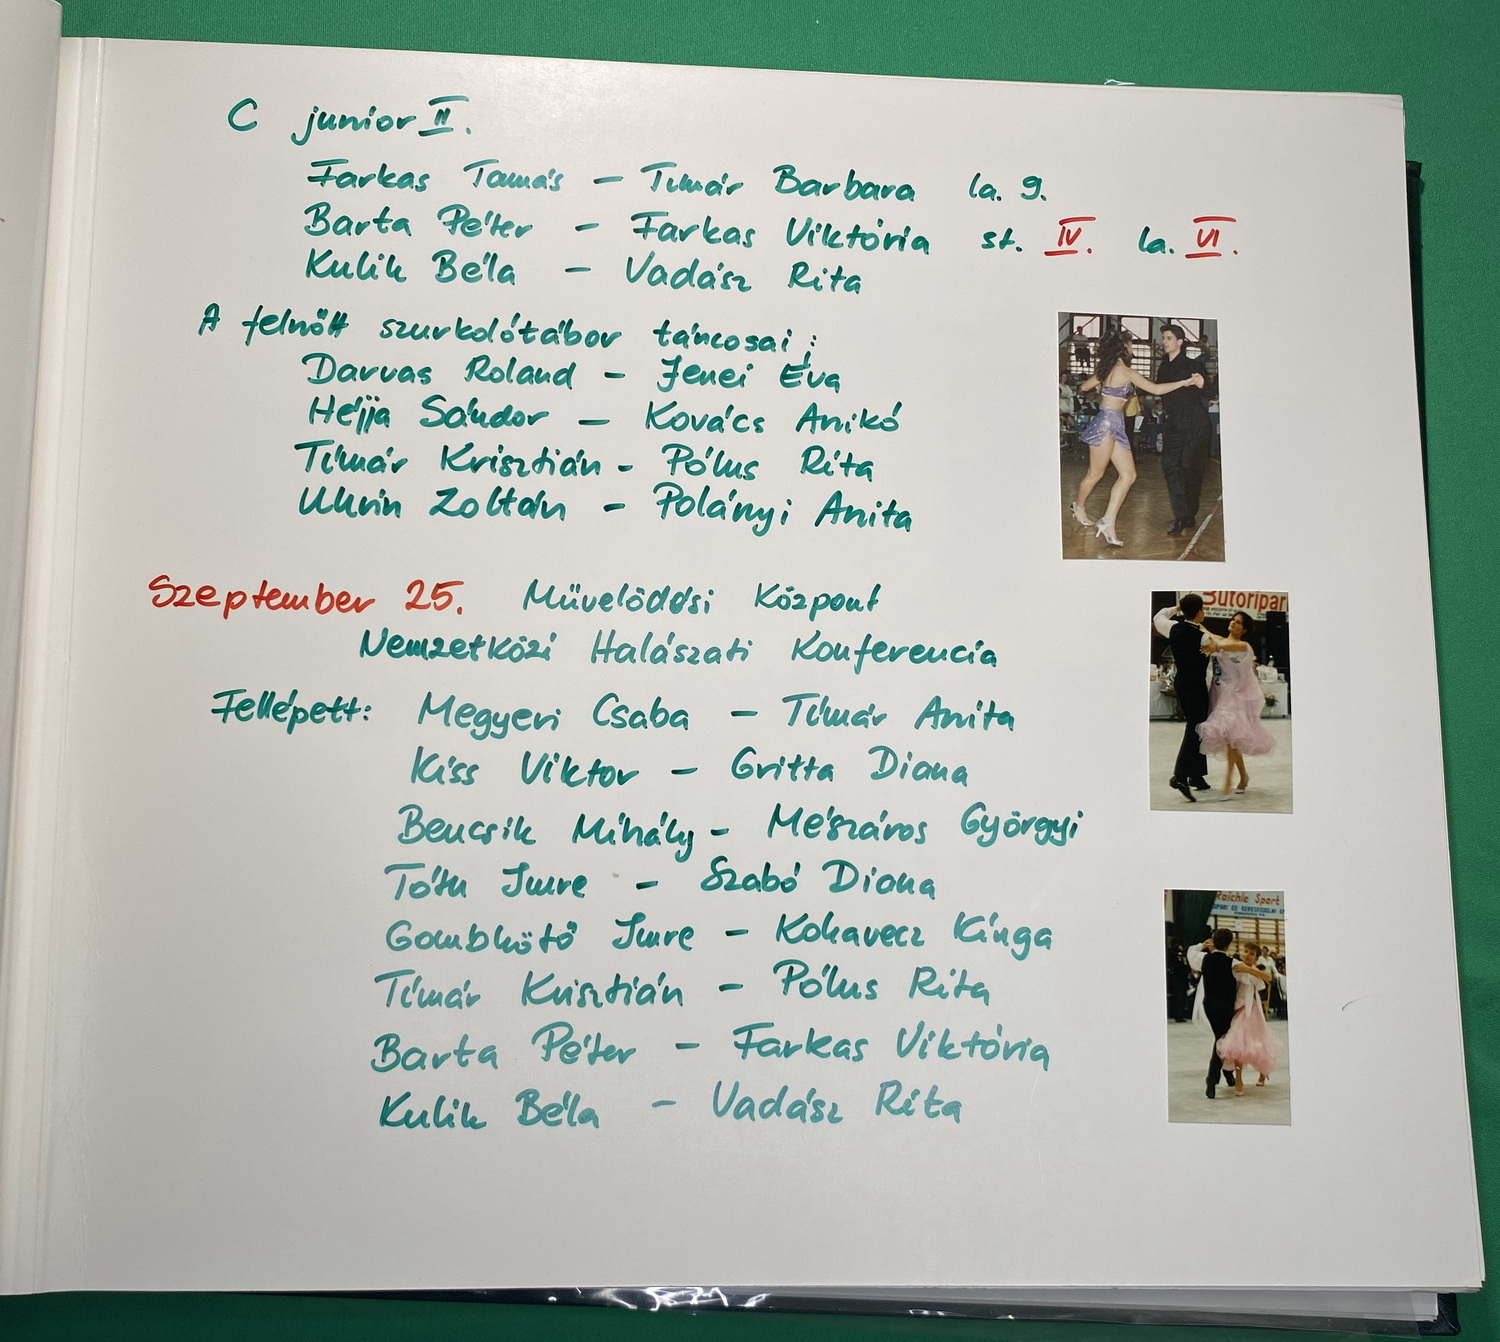 C junior II.
Farkas Tamás – Tímár Barbara la. 9.
Barta Péter – Farkas Viktória st. IV. la. VI.
Kulik Béla – Vadász Rita
A felnőtt szurkolótábor táncosai:
Darvas Roland – Jenei Éva
Héjja Sándor – Kovács Anikó
Tímár Krisztián – Pólus Rita
Uhrin Zoltán – Polányi Anita
Szeptember 25. Művelődési Központ
Nemzetközi Halászati Konferencia
Fellépett: Megyeri Csaba – Tímár Anita
Kiss Viktor – Gritta Diana
Bencsik Mihály – Mészáros Györgyi
Tóth Imre – Szabó Diana
Gombkötő Imre – Kohavecz Kinga
Tímár Krisztián – Pólus Rita
Barta Péter – Farkas Viktória
Kulik Béla – Vadász Rita
Butoripar
Raichle Sport